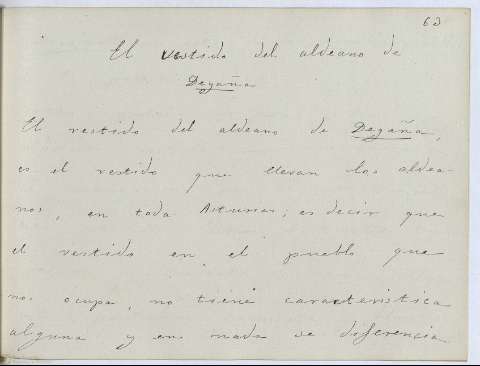 63
El vestido del aldeano de
Degaña
El vestido del aldeano de Degaña,
es el vestido que llevan los aldea-
nos, en toda Asturias; es decir que
el vestido en el pueblo que
nos ocupa, no tiene caracteristica
alguna y en nada se diferencia